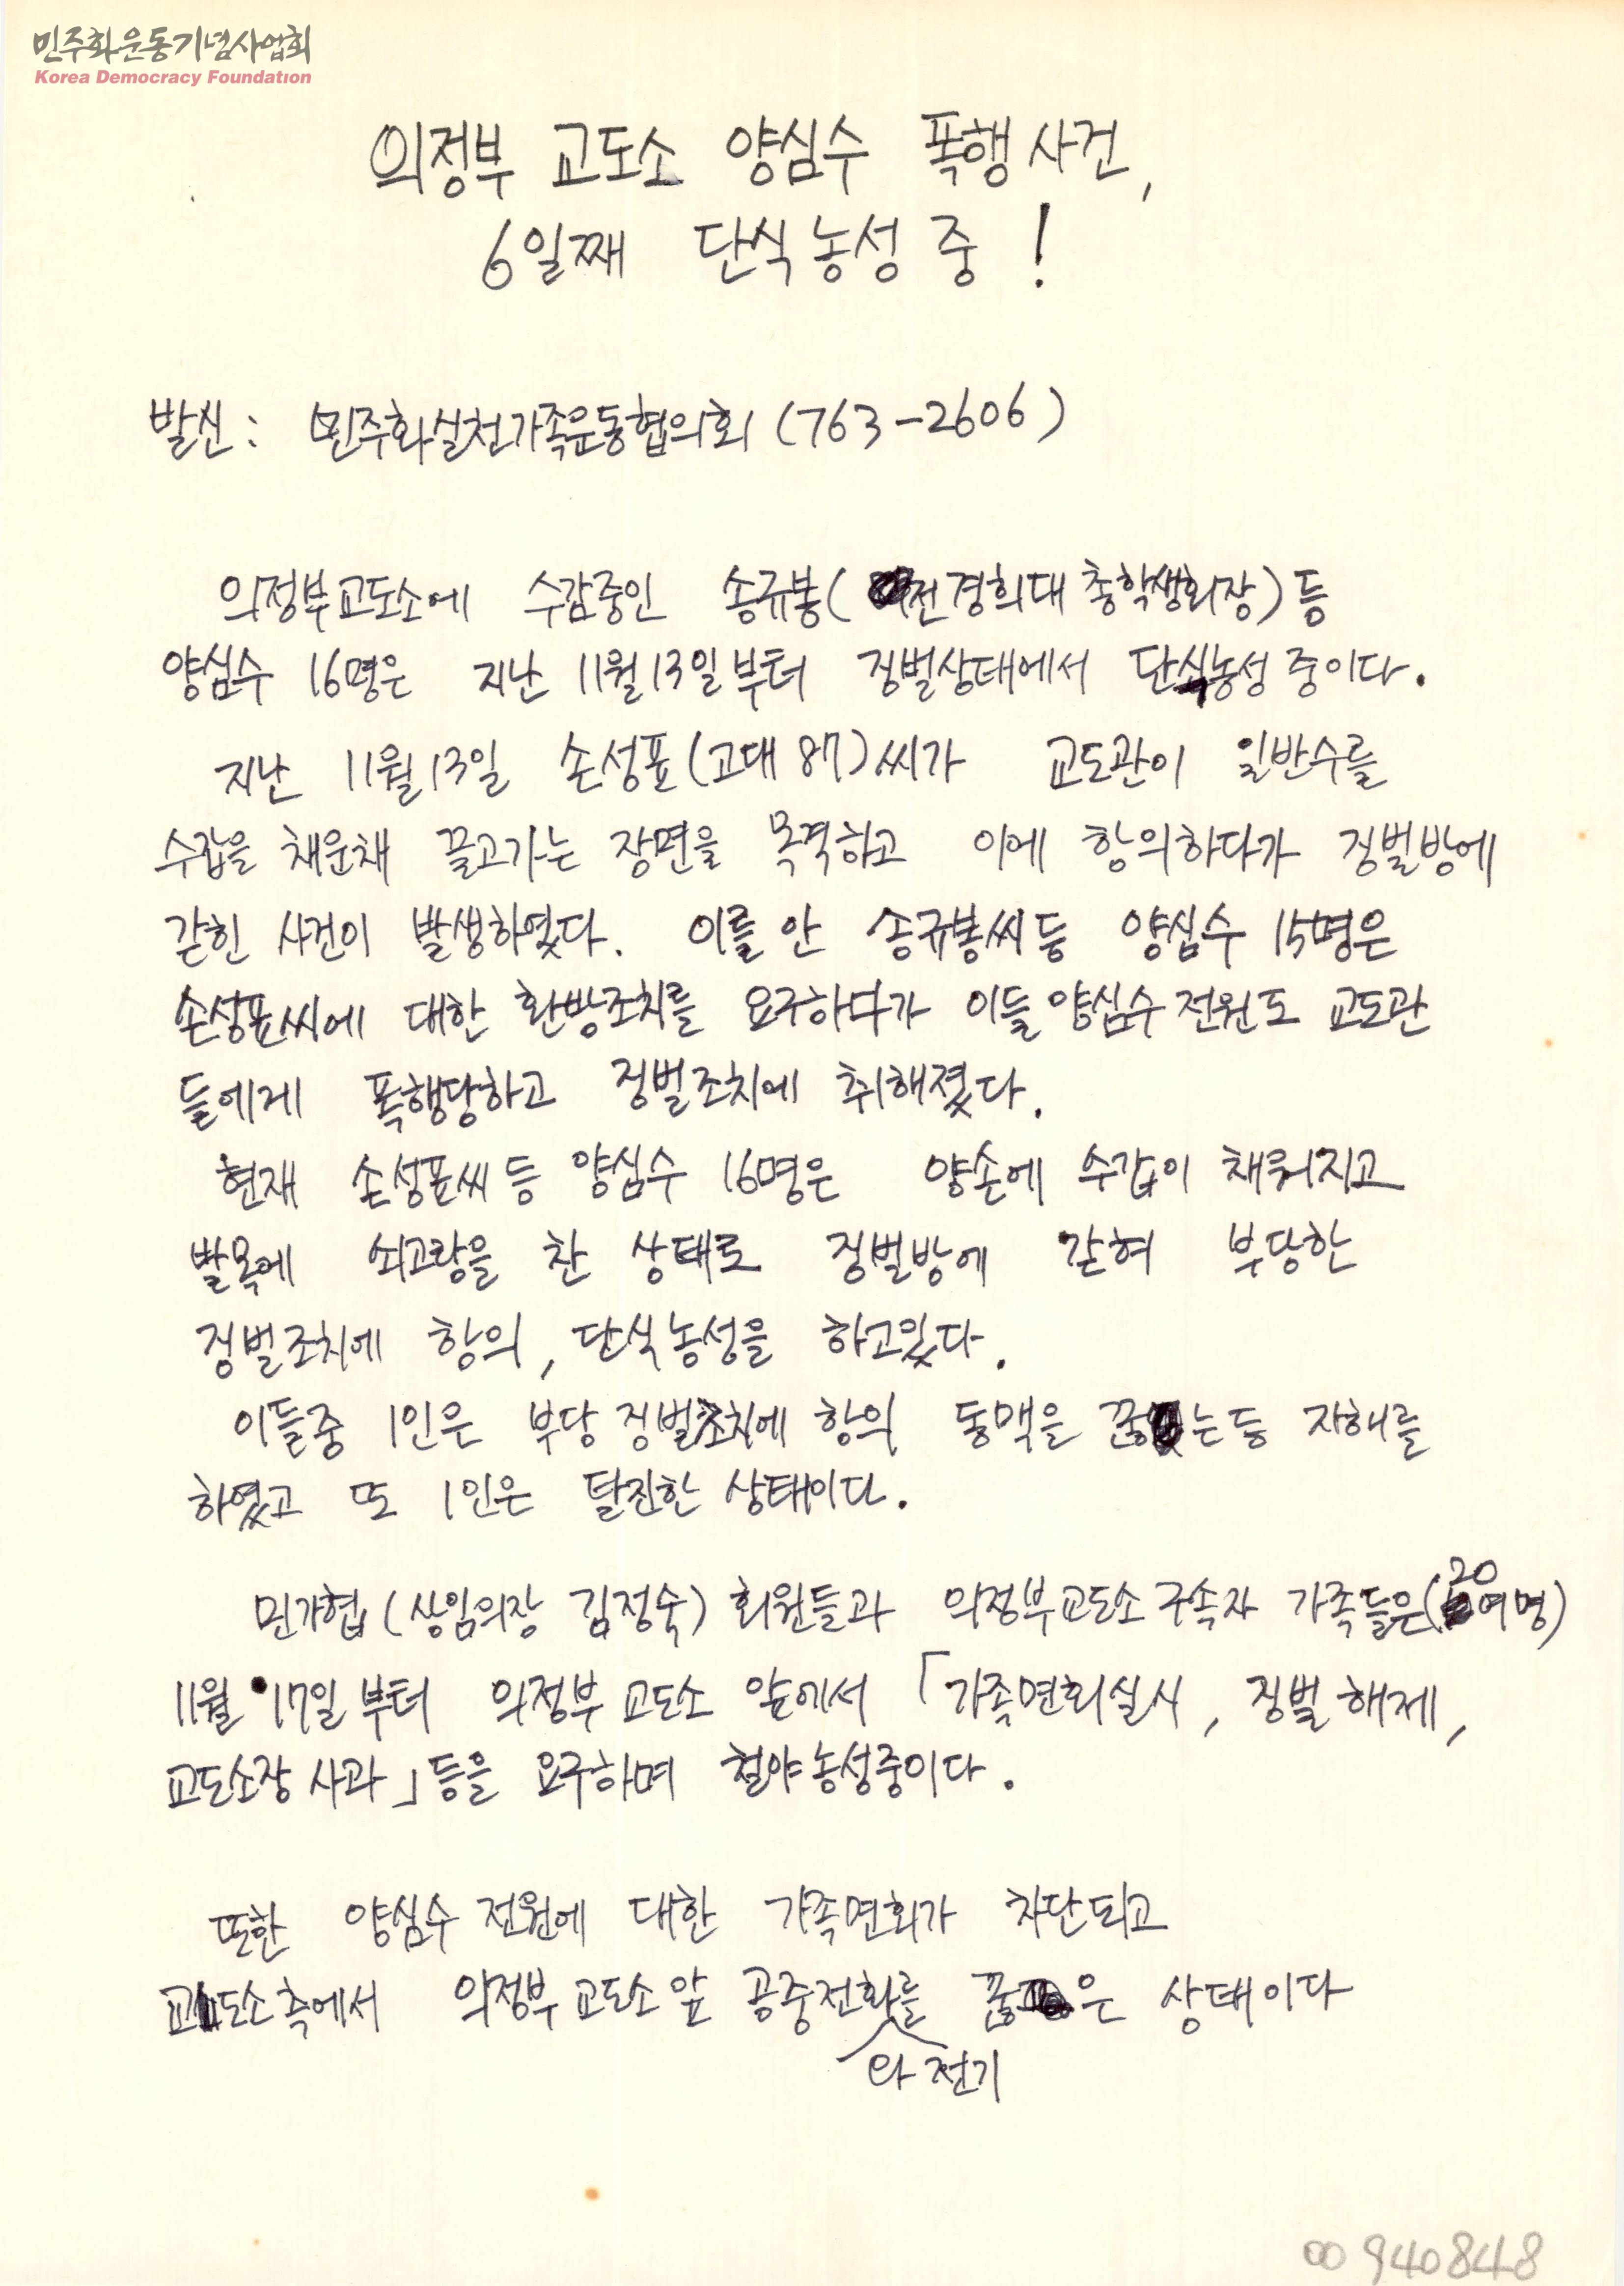 민주화운동기념사업회
Korea Democracy Foundation
의정부 교도소 양심수 폭행사건,
6일째 단식농성중!
발신: 민주화실천가족운동협의회 (763-2606)
의정부교도소에 수감중인 송규봉(전 경희대 총학생회장) 등
양심수 16명은 지난 11월 13일부터 징벌상태에서 단식농성중이다.
지난 11월 13일 손성표(고대 87)씨가 교도관이 일반수를
수갑을 채운채 끌고가는 장면을 목격하고 이에 항의하다가 징벌방에
갇힌 사건이 발생하였다. 이를 안 송규봉씨 등 양심수 15명은
손성표씨에 대한 환방조치를 요구하다가 이들 양심수 전원도 교도관
들에게 폭행당하고 징벌조치에 취해졌다.
현재 손성표씨 등 양심수 16명은 양손에 수갑이 채워지고
발목에 쇠고랑을 찬 상태로 징벌방에 갇혀 부당한
징벌조치에 항의, 단식농성을 하고있다.
이들중 1인은 부당 징벌조치에 항의 동맥을 끊는등 자해를
하였고 또 1인은 탈진한 상태이다.
민가협(상임의장 김정숙) 회원들과 의정부교도소 구속자 가족들은(20여명)
11월 17일부터 의정부 교도소 앞에서 「가족면회실시, 징벌 해제,
교도소장 사과」 등을 요구하며 철야농성중이다.
또한 양심수 전원에 대한 가족면회가 차단되고
교도소측에서 의정부교도소 앞 공중전화를 끊은 상태이다
와 전기
00940848